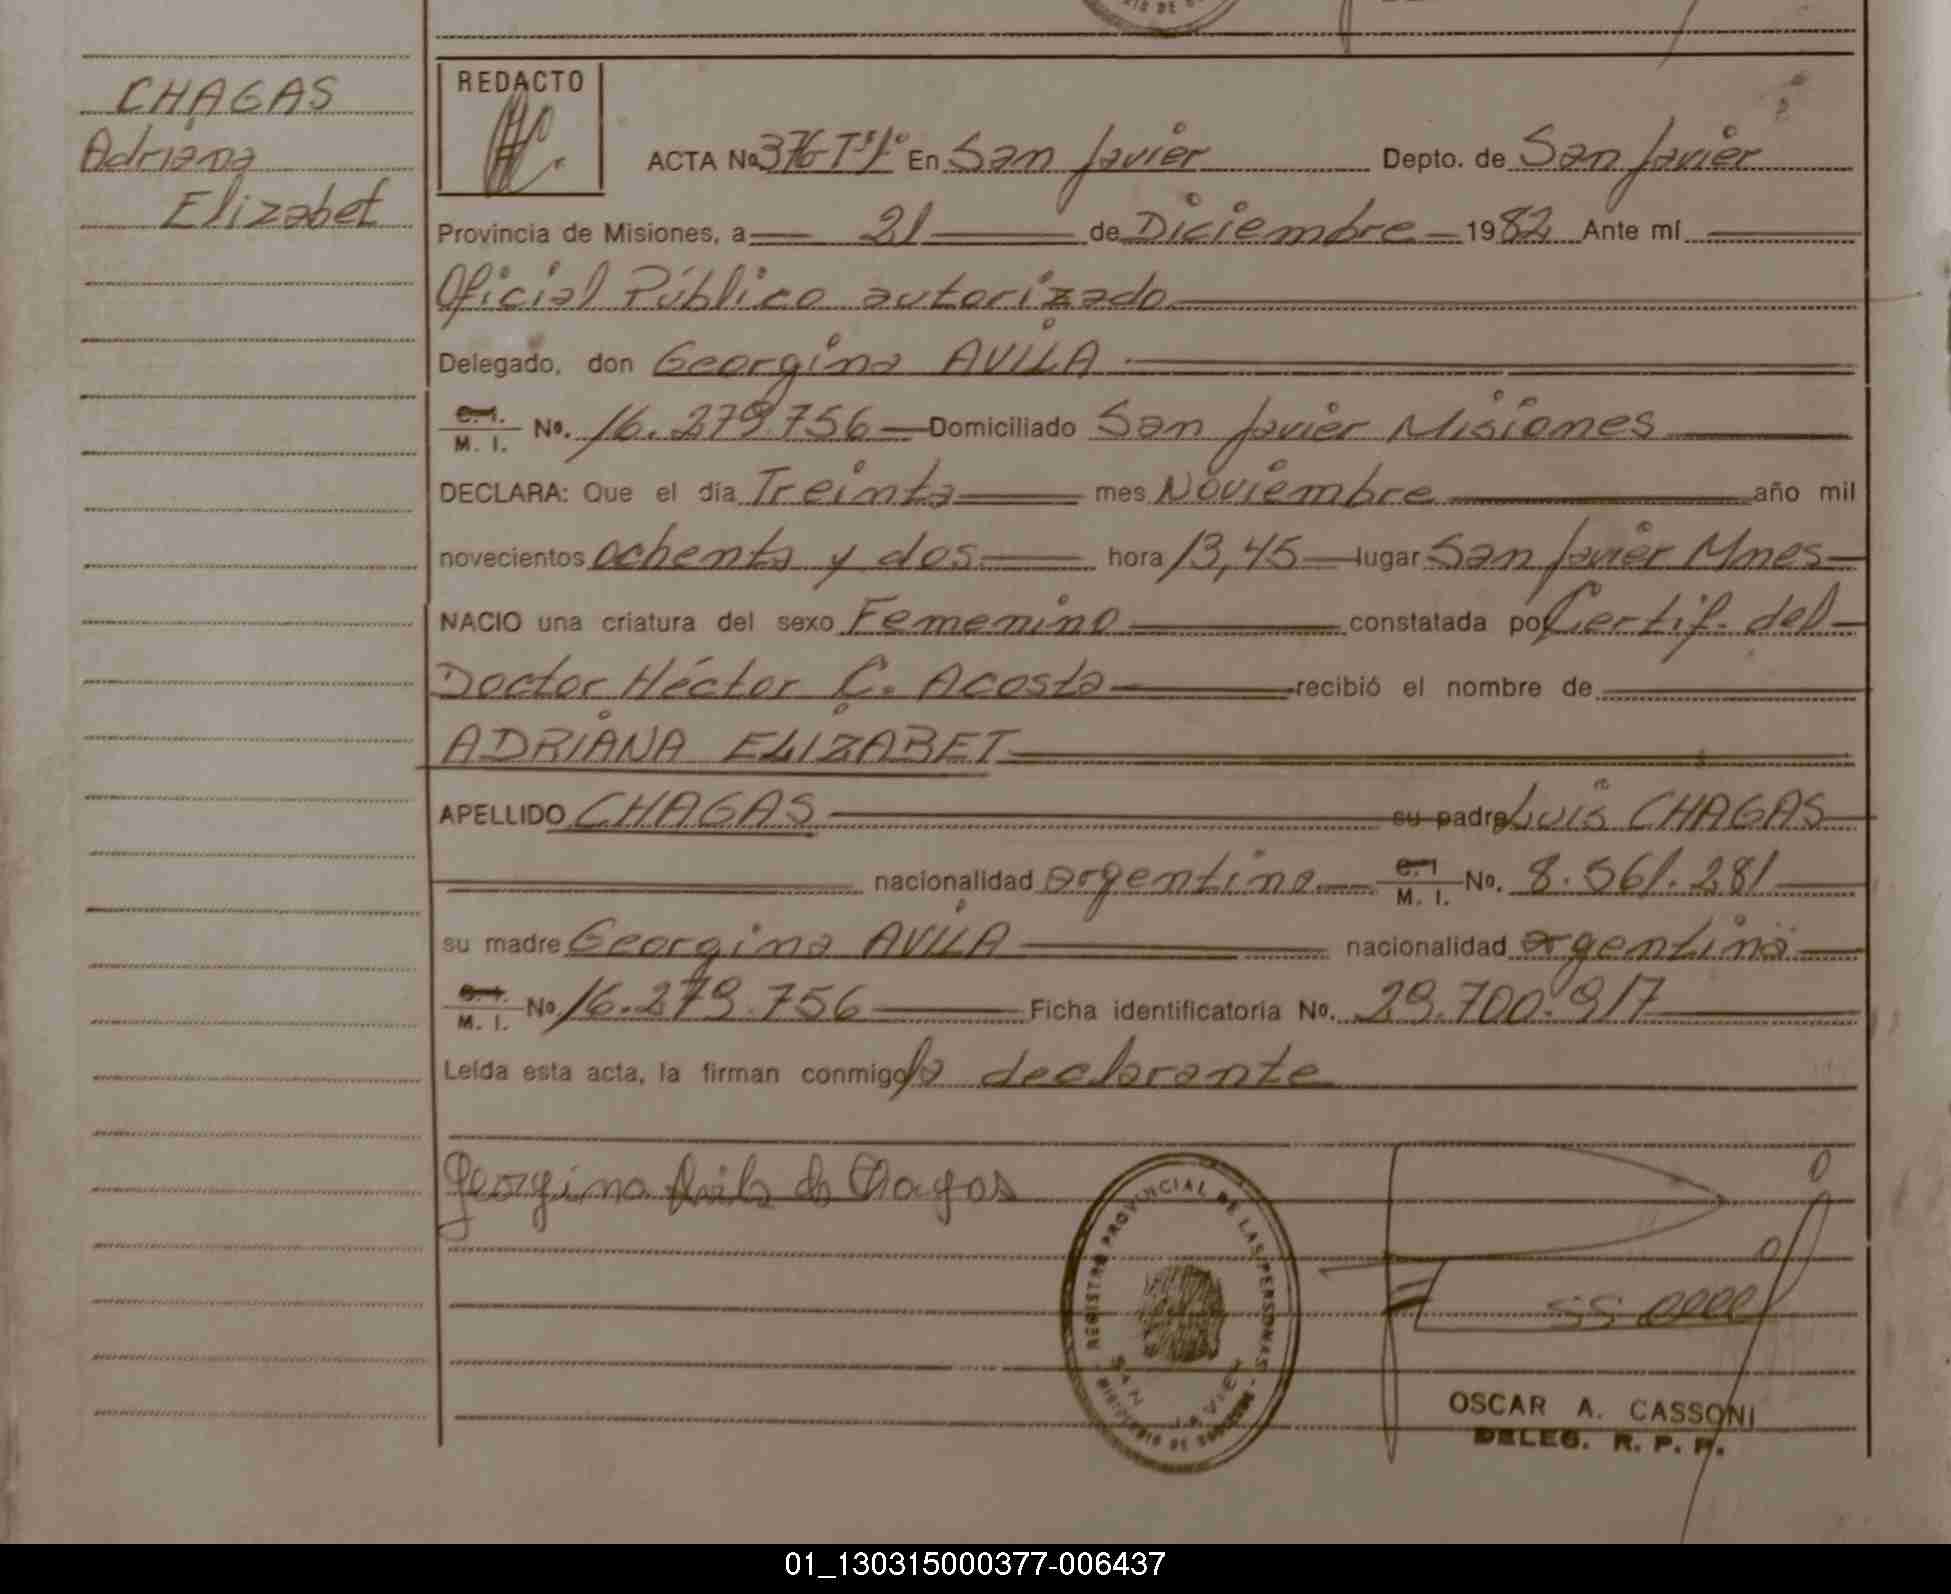 CHAGAS
Adriana
Elizabet
REDACTO
ACTA No 376 Tº1º En San Javier Depto. de San Javier
Provincia de Misiones, a 21 de Diciembre 1982 Ante mí
Oficial Público autorizado
Delegado, don Georgina AVILA
C. I. M. I. No. 16.279.756 Domiciliado San Javier Misiones
DECLARA: Que el día Treinta mes Noviembre año mil
novecientos ochenta y dos hora 13,45 lugar San Javier Mnes
NACIO una criatura del sexo Femenino constatada por Certif. del
Doctor Héctor C. Acosta recibió el nombre de
ADRIANA ELIZABET
APELLIDO CHAGAS su padre Luis CHAGAS
nacionalidad argentina C. I. M. I. No. 8.561.281
su madre Georgina AVILA nacionalidad argentina
C. I. M. I. No. 16.279.756 Ficha identificatoria No. 29.700.917
Leída esta acta, la firman conmigo la declarante
Georgina Avila de Chagas
REGISTRO PROVINCIAL DE LAS PERSONAS
SAN JAVIER
OSCAR A. CASSONI
DELEG. R. P. P.
01_130315000377-006437